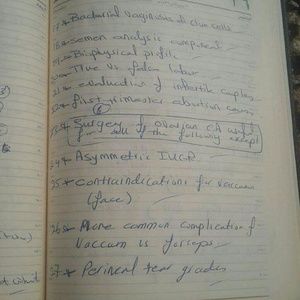 17* Bacterial Vaginosis & clue cells
18* Semen analysis
19* Biophysical profile
20* True vs false labor
21* evaluation of infertile couples
22* first trimester abortion
23* Surgery of ovarian CA
for all of the following except
24* Asymmetric IUGR
25* contraindications for vaccum
(face)
26* More common complication of
Vaccum vs forseps
27* Perineal tear grades